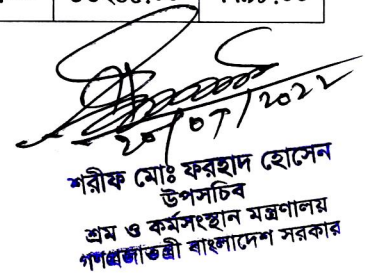 20/07/2022
শরীফ মোঃ ফরহাদ হোসেন
উপসচিব
শ্রম ও কর্মসংস্থান মন্ত্রণালয়
গণপ্রজাতন্ত্রী বাংলাদেশ সরকার